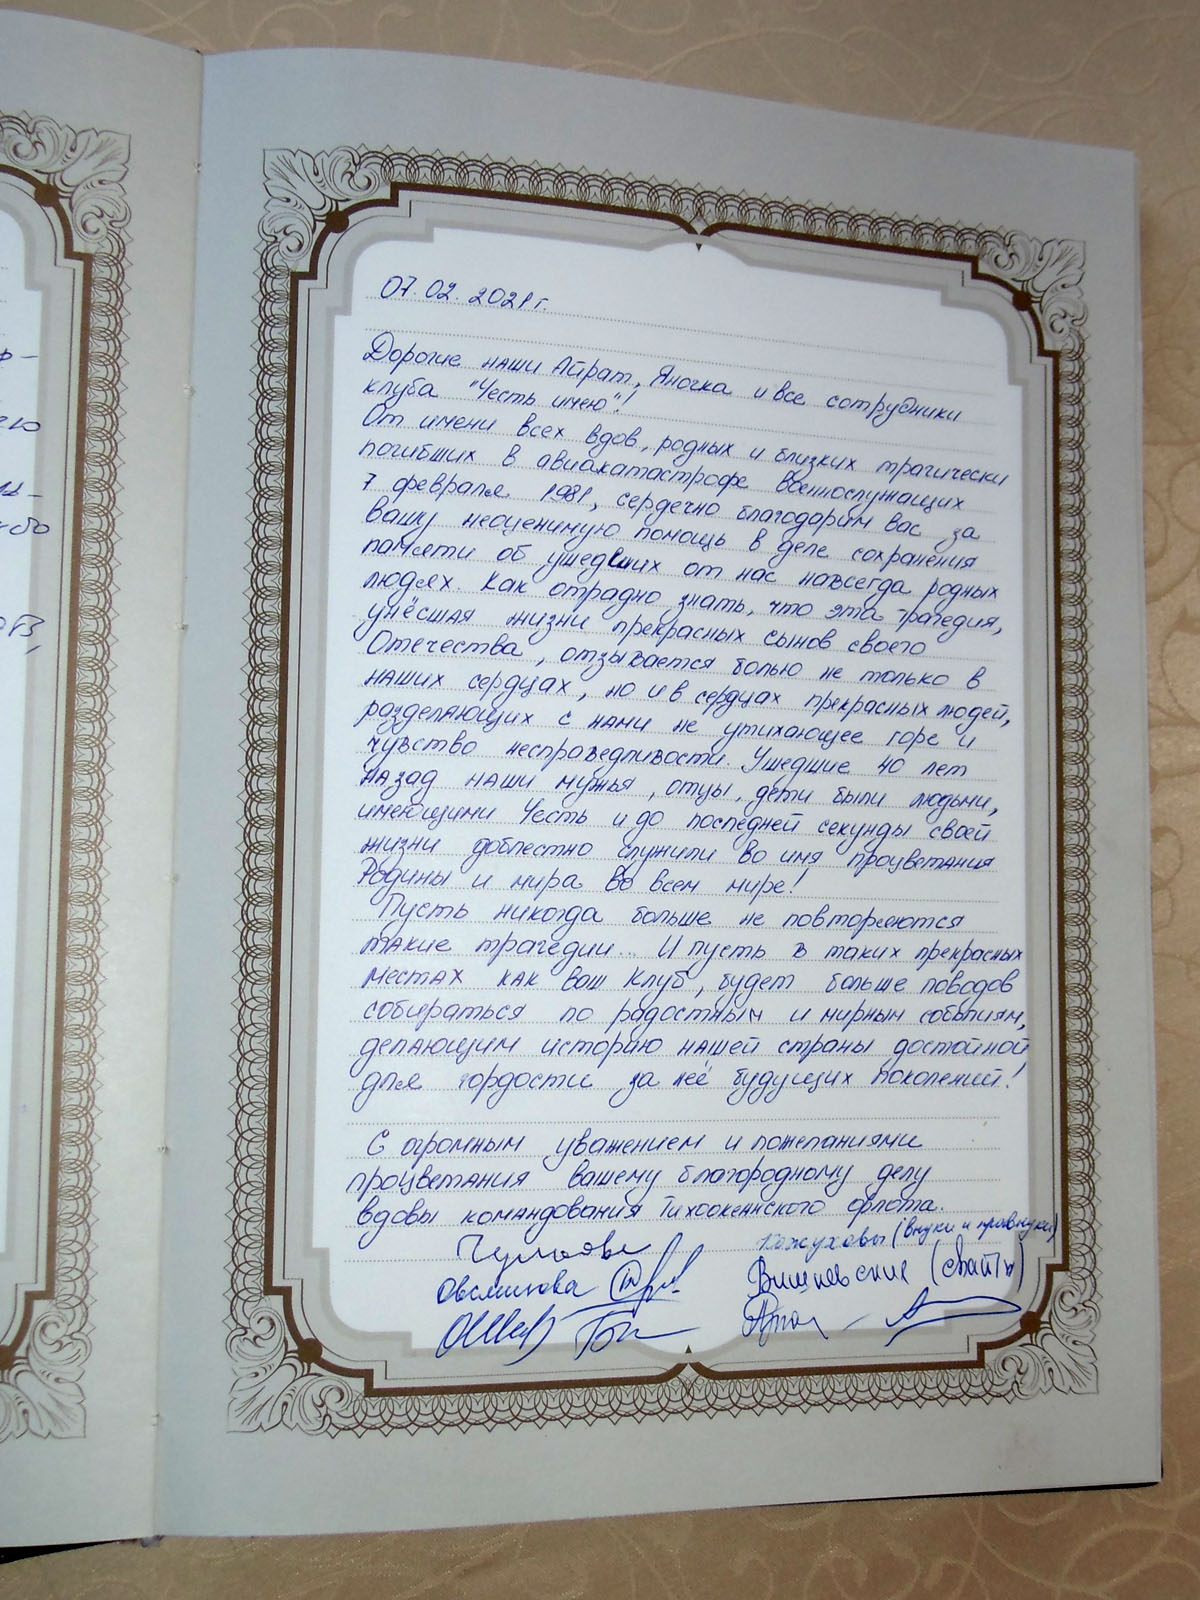 07.02.2021г.
Дорогие наши Айрат, Яночка и все сотрудники
клуба "Честь имею"!
От имени всех вдов, родных и близких трагически
погибших в авиакатастрофе военнослужащих
7 февраля 1981, сердечно благодарим вас за
Вашу неоценимую помощь в деле сохранения
памяти об ушедших от нас навсегда родных
людях. Как отрадно знать, что эта трагедия,
унёсшая жизни прекрасных сынов своего
Отечества, отзывается болью не только в
наших сердцах, но и в сердцах прекрасных людей,
разделяющих с нами не утихающее горе и
чувство несправедливости. Ушедшие 40 лет
назад наши мужья, отцы, дети были людьми,
имеющими Честь и до последней секунды своей
жизни доблестно служили во имя процветания
Родины и мира во всем мире!
Пусть никогда больше не повторяются
такие трагедии... И пусть в таких прекрасных
местах как ваш Клуб, будет больше поводов
собираться по радостным и мирным событиям,
делающим историю нашей страны достойной
для гордости за неё будущих поколений!
С огромным уважением и пожеланиями
процветания вашему благородному делу
вдовы командования Тихоокеанского флота.
Кожуховы (внуки и правнуки)
Вишневские (сваты)
ю
-
бо
ов,